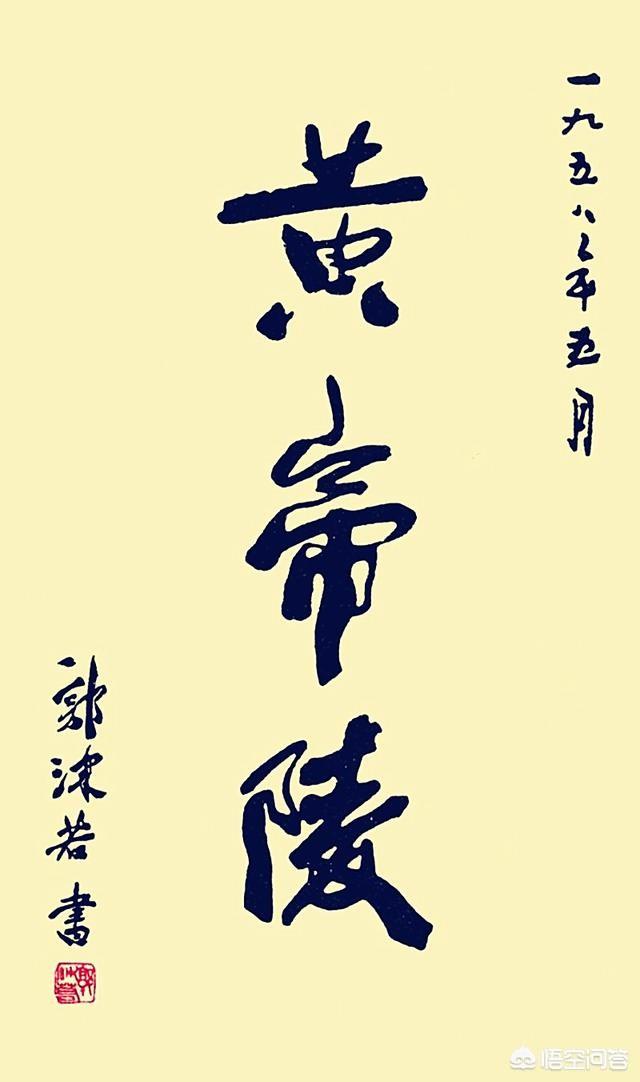 一九五八年五月
黄帝陵
郭沫若书
悟空问答